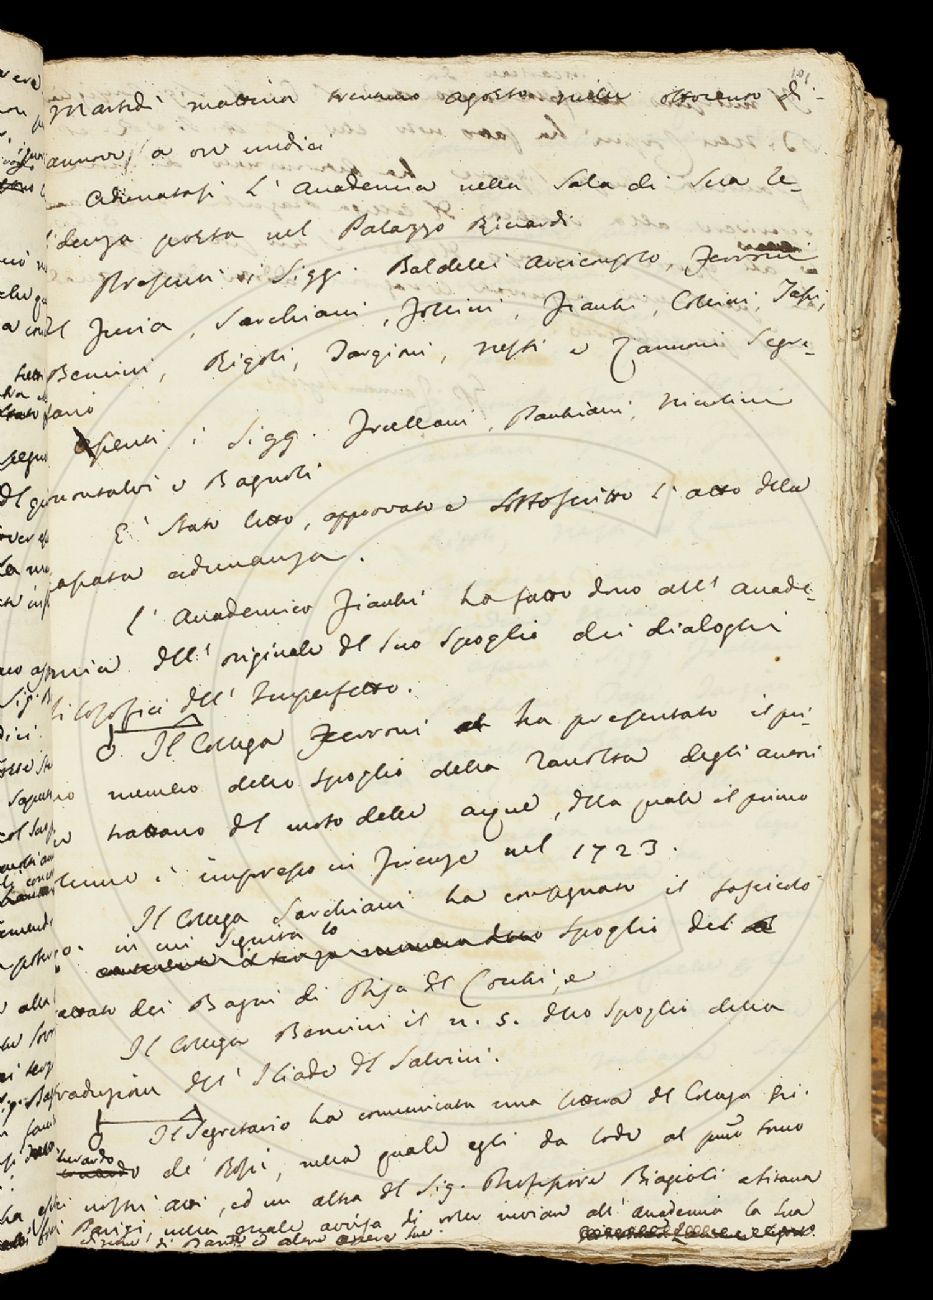 101
Martedì mattina trentuno agosto mille ottocento di-
annove, a ore undici
Adunatasi l'Accademia nella Sala di Sua Re-
denza posta nel Palazzo Riccardi
Presenti i Sigg. Baldelli Arciconsolo, Ferroni
del Furia, Sarchiani, Follini, Fiacchi, Collini, Tassi,
Bencini, Rigoli, Targioni, Nesti e Zannoni Segre-
tario
Assenti i Sigg. Frullani, Pauchiani, Niccolini
Montalvi e Bagnoli
È stato letto, approvato e sottoscritto l'atto della
passata adunanza.
L'Accademico Fiacchi ha fatto dono all'Accade-
mia dell'originale del suo Spoglio dei dialoghi
filosofici dell'Imperfetto.
Il Collega Ferroni ha presentato il pri-
mo numero dello Spoglio della Raccolta degli autori
che trattano del moto delle acque, della quale il primo
tomo è impresso in Firenze nel 1723.
Il Collega Sarchiani ha consegnato il fascicolo
in cui seguita lo
spoglio del
trattato dei Bagni di Pisa del Cocchi, e
Il Collega Bencini il n. 5. dello Spoglio della
traduzione dell'Iliade del Salvini.
Il Segretario ha comunicata una lettera del Collega Ghe-
rardo de' Rossi, nella quale egli dà lode al primo tomo
nostri atti, ed un'altra del Sig. Giuseppe Biagioli abitante
Parigi, nella quale avvisa di voler inviare all'Accademia la sua
di Dante e altre opere sue.